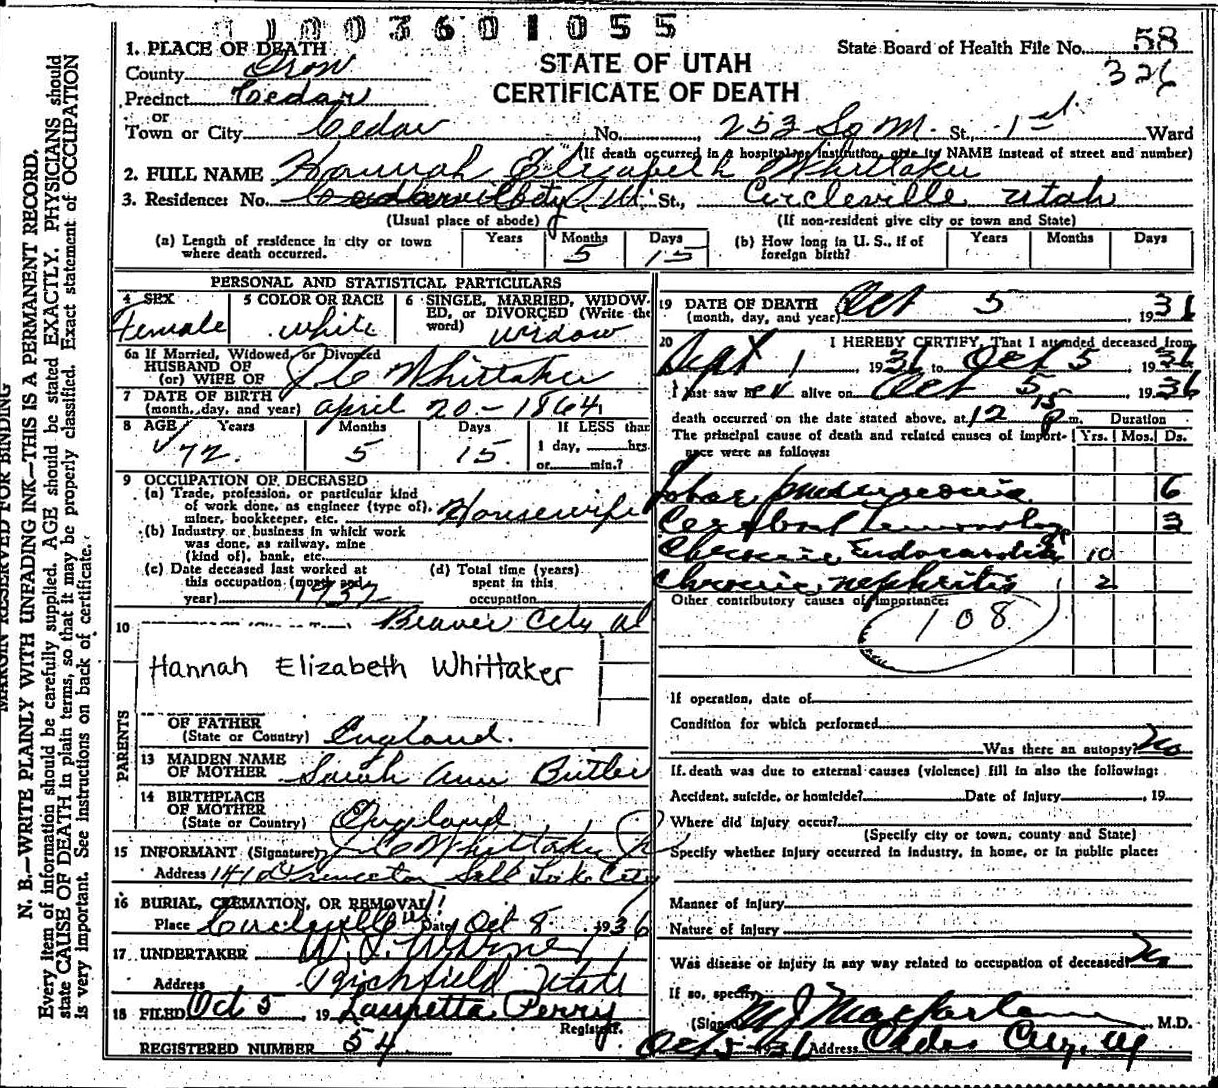 1003601055
1. PLACE OF DEATH
County Iron
Precinct Cedar
or
Town or City Cedar No. 253 So M. St., 1st Ward
STATE OF UTAH
CERTIFICATE OF DEATH
State Board of Health File No. 58
326
(If death occurred in a hospital or institution, give its NAME instead of street and number)
2. FULL NAME Hannah Elizabeth Whittaker
3. Residence: No. St., Circleville Utah
(Usual place of abode) (If non-resident give city or town and State)
(a) Length of residence in city or town where death occurred. Years Months 5 Days 15
(b) How long in U. S., if of foreign birth? Years Months Days
PERSONAL AND STATISTICAL PARTICULARS
4 SEX Female
5 COLOR OR RACE white
6 SINGLE, MARRIED, WIDOWED, or DIVORCED (Write the word) widow
6a If Married, Widowed, or Divorced
HUSBAND OF
(or) WIFE OF J C Whittaker
7 DATE OF BIRTH
(month, day, and year) april 20-1864
8 AGE Years 72 Months 5 Days 15 If LESS than
1 day, hrs.
or min.?
9 OCCUPATION OF DECEASED
(a) Trade, profession, or particular kind
of work done, as engineer (type of),
miner, bookkeeper, etc. Housewife
(b) Industry or business in which work
was done, as railway, mine
(kind of), bank, etc.
(c) Date deceased last worked at
this occupation (month and
year)
(d) Total time (years)
spent in this
occupation
10 Beaver City
Hannah Elizabeth Whittaker
PARENTS
OF FATHER
(State or Country) England.
13 MAIDEN NAME
OF MOTHER Sarah Ann Butler
14 BIRTHPLACE
OF MOTHER
(State or Country) England
15 INFORMANT (Signature) J C Whittaker Jr
Address 1410 Princeton Salt Lake City
16 BURIAL, CREMATION, OR REMOVAL!
Place Circleville Ut Date Oct 8 1936
17 UNDERTAKER
Address Richfield Utah
18 FILED Oct 5, 19 Lauretta Perry
Registrar.
REGISTERED NUMBER 54
19 DATE OF DEATH
(month, day, and year) Oct 5, 1936
20 I HEREBY CERTIFY, That I attended deceased from
Sept 1, 1936 to Oct 5, 1936
I last saw her alive on Oct 5, 1936
death occurred on the date stated above, at 12 15 p m. Duration
The principal cause of death and related causes of importance were as follows: Yrs. Mos. Ds.
Lobar pneumonia 6
Cerebral hemorrhage 3
Chronic Endocarditis 10
Chronic nephritis 2
Other contributory causes of importance:
108
If operation, date of
Condition for which performed
Was there an autopsy? No
If death was due to external causes (violence) fill in also the following:
Accident, suicide, or homicide? Date of injury , 19
Where did injury occur?
(Specify city or town, county and State)
Specify whether injury occurred in industry, in home, or in public place:
Manner of injury
Nature of injury
Was disease or injury in any way related to occupation of deceased? No
If so, specify
(Signed) M J Macfarlane M.D.
Oct 5 1936 Address Cedar City, Ut
MARGIN RESERVED FOR BINDING
N. B.—WRITE PLAINLY WITH UNFADING INK—THIS IS A PERMANENT RECORD.
Every item of information should be carefully supplied. AGE should be stated EXACTLY. PHYSICIANS should
state CAUSE OF DEATH in plain terms, so that it may be properly classified. Exact statement of OCCUPATION
is very important. See instructions on back of certificate.